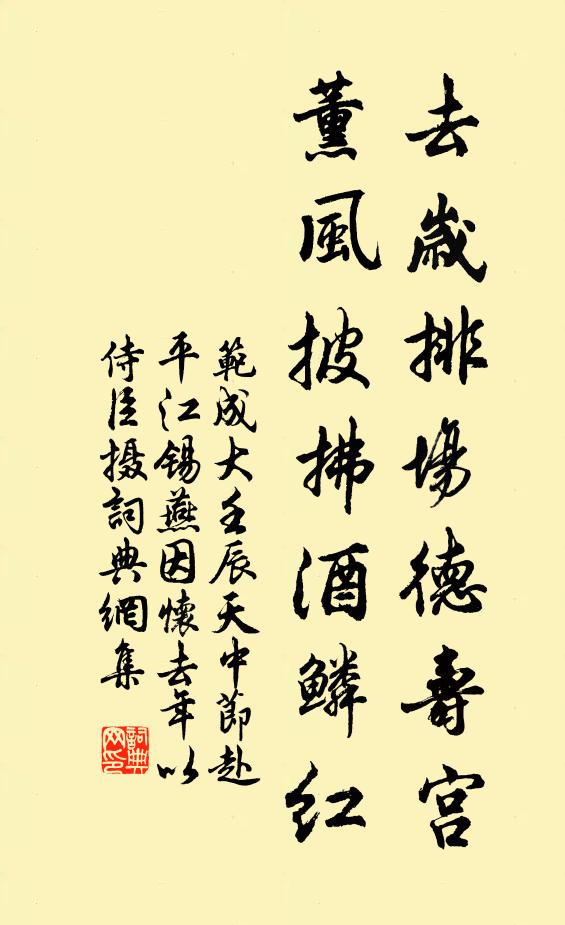 去歲排場德壽宮
薰風披拂酒鱗紅
範成大壬辰天中節赴
平江錫燕因懷去年以
侍臣摄詞典網集
詞典网印